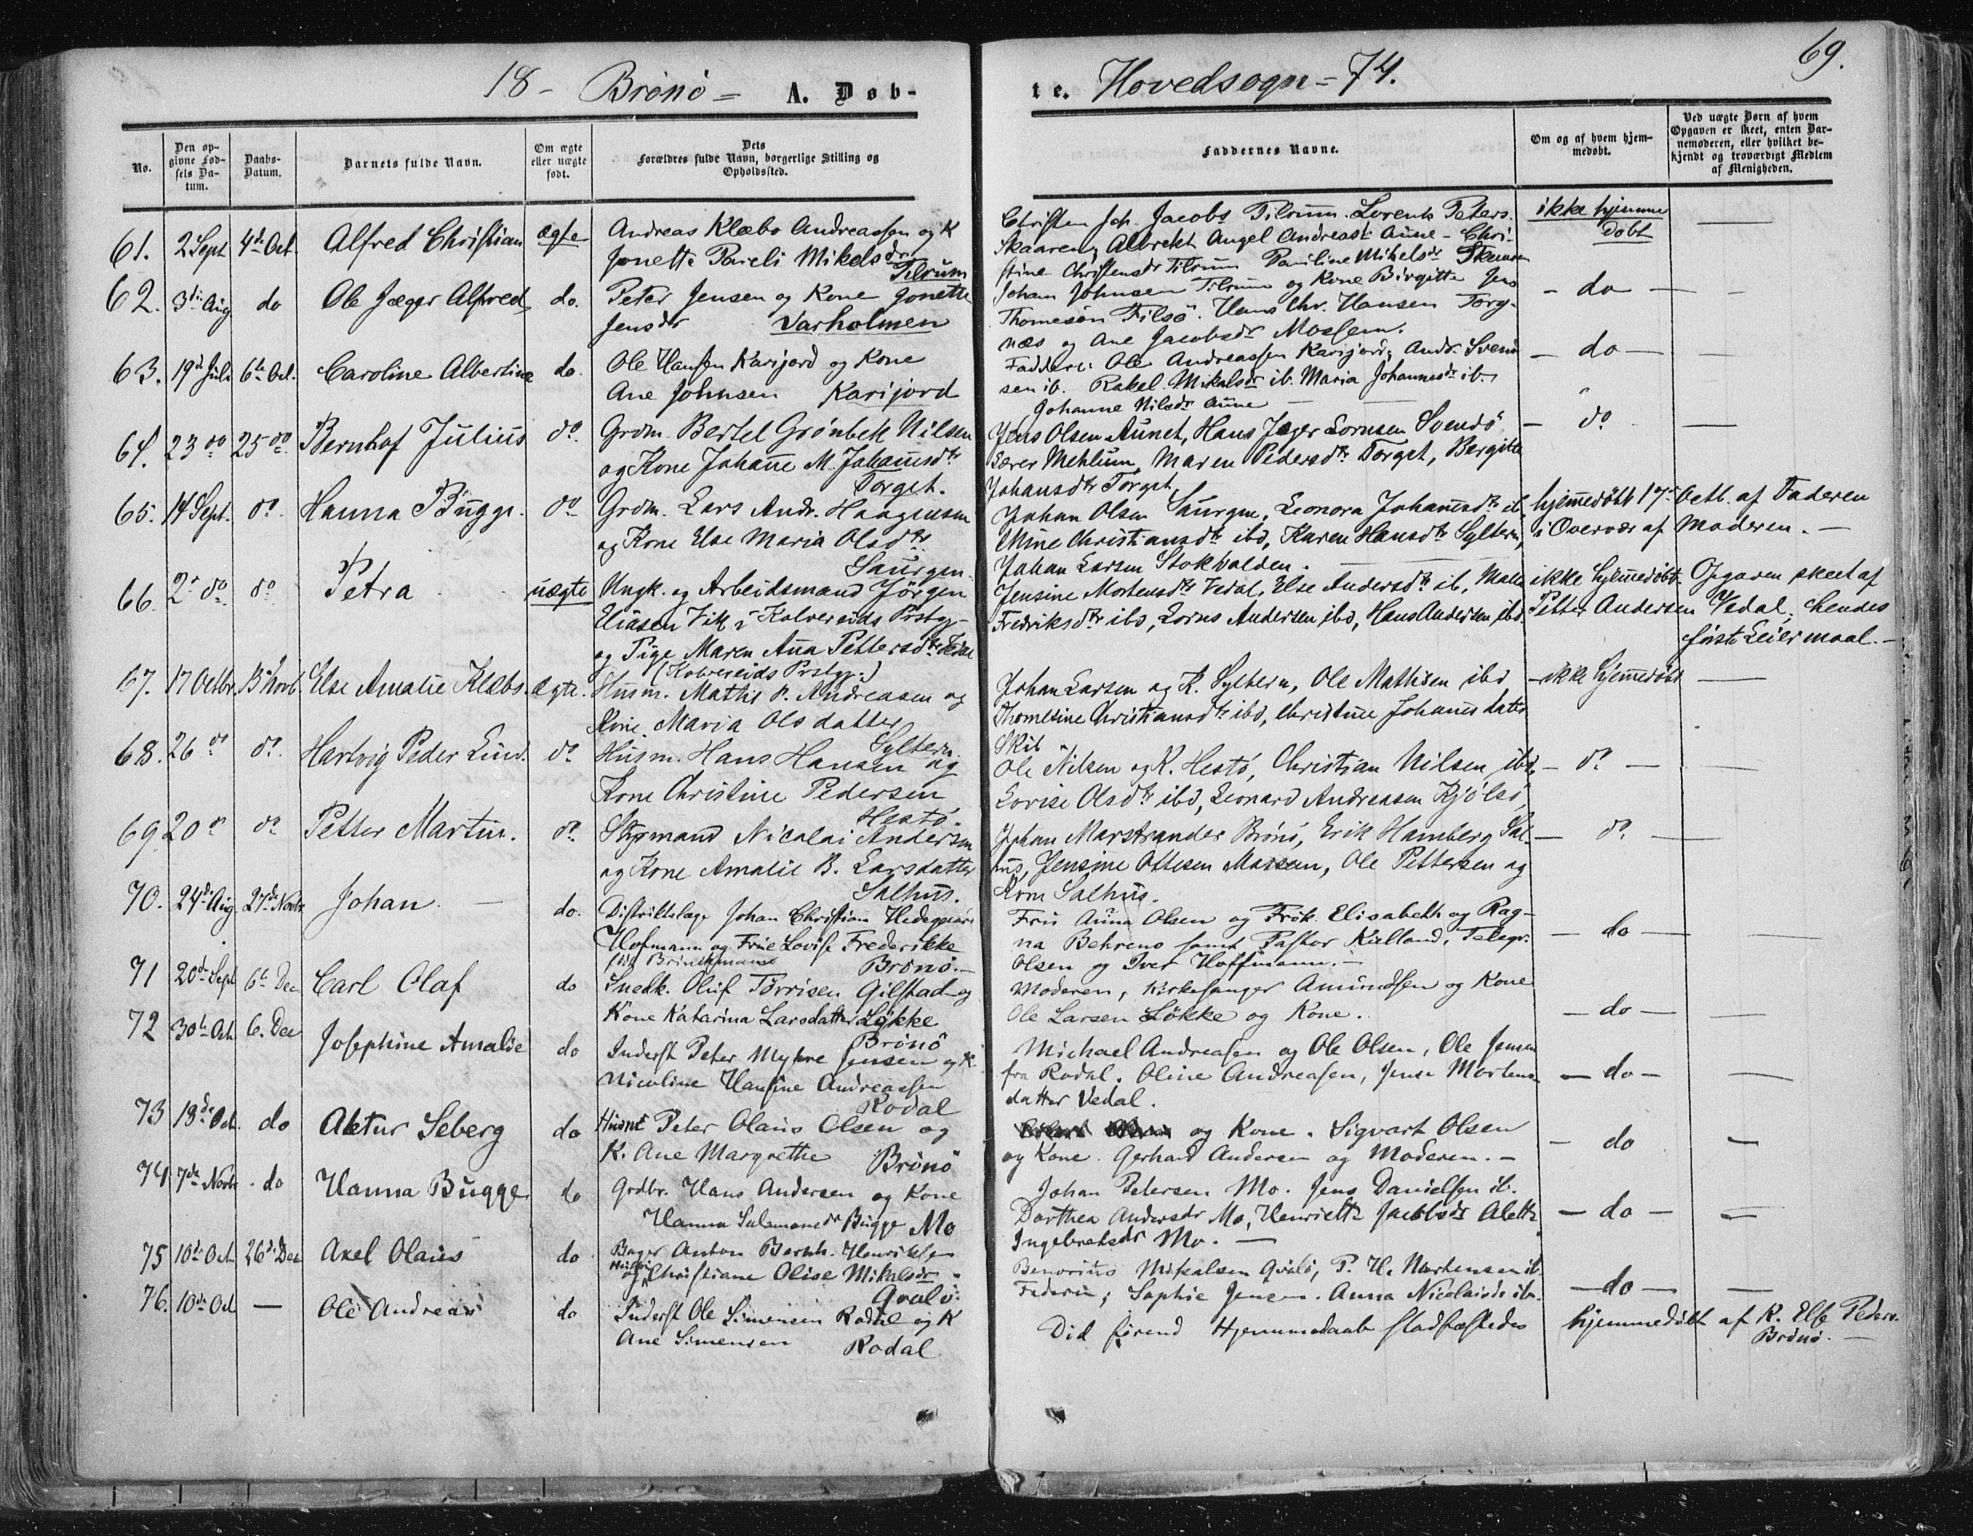 18 - Brönö = A. Døb-
No.
Den opgivne Fødsels Datum.
Daabs-Datum.
Barnets fulde Navn.
Om ægte eller uægte født.
Dets Forældres fulde Navn, borgerlige Stilling og Opholdssted.
61. 2 Sept 4de Oct. Alfred Christian ægte Andreas Klæbo Andreassen og K
Jonette Pareli Mikelsdr
Tilrum
62. 3die Aug do Ole Jæger Alfred do. Peter Jensen og Kone Jonette
Jensdr Varholmen
63. 19de Juli 6te Oct. Caroline Albertine do. Ole Hansen Karijord og Kone
Ane Johnsen Karijord
64. 23 do 25 do Bernhof Julius do. Grdm. Bertel Grönbek Nilsen
og Kone Johane M. Johansdtr
Torget.
65. 14 Sept. do. Hanna Bugge. do Grdm. Lars Andr. Haagensen
og Kone Else Maria Olsdtr
Saurgen.
66. 2 do. do. Petra uægte Ungk. og Arbeidsmand Jörgen
Eliasen Vik i Kolvereids Prstgj.
og Pige Maren Ana Pettersdtr Vedal
(Kolvereids Prstgj.)
67. 17 Octbr. 15 Novb. Else Amalie Klæbo. Ægte. Husm. Mathis P. Andreasen og
Kone Maria Olsdatter
Syltern.
68. 26 do do. Hartvig Peder Lund. do. Husm. Hans Hansen og
Kone Christine Pedersen
Hestö.
69. 20 do do. Petter Martin. do. Styrmand Nicolai Andersen
og Kone Amalie B. Larsdatter
Salhus.
70. 24de Aug 27de Novbr Johan. do. Distriktslæge Johan Christian
Hofmann og Frue Lovise Frederikke
Brönö.
71 20de Sept 6te Dec Carl Olaf do Snedk. Oluf Torrisen Gilstad og
Kone Katarina Larsdatter Løkke
Brönö
72 30te Oct. 6. Dec Josephine Amalie do Inderst Peter Myhre Jensen og K.
Nicoline Hansine Andreassen
Rodal
73 13de Oct. do Aktur Seberg do Husmd Peter Olaus Olsen og
K. Ane Margrethe Brönö
74 7de Novbr do Hanna Bugge do Grdbr. Hans Andersen og Kone
Hanna Salamonsdr Bugge Mo
75 10de Oct 26de Dec Axel Olaus do Bager Anton Bernh. Henriksen
og Hustru Christiane Olise Mikalsdr
Qvalö.
76. 10de Oct — Ole Andreas do Inderst Ole Simensen Rodal og K
Ane Simensen Rodal
69.
te. Hovedsogn = 74.
Faddernes Navne.
Om og af hvem hjemmedøbt.
Ved uægte Børn af hvem Opgaven er skeet, enten Barnemoderen, eller hvilket bekjendt og troværdigt Medlem af Menigheden.
Christen Joh. Jacobs Tilrum. Lorents Peters. ikke hjemme
Skaaren, Albrekt Angel Andreas Aune - Chri- døbt
stine Christensdr Tilrum Pauline Mikelsdr
Johan Johnsen Tilrum og Kone Birgitte Jens — do —
Thomesøn Tilsö. Hans Chr. Hansen Torg-
næs og Ane Jacobsdr Mossem.
Faddere: Ole Andreassen Karijord, Andr. Svend- — do —
sen ib. Rakel Mikalsdr ib. Maria Johannesdr ib.
Johanne Nilsdr Aune
Jens Olsen Aunet, Hans Jæger Lornsen Svendö — do
Lærer Mehlum, Maren Pedersdtr Torget, Bergitte
Johansdtr Torget
Johan Olsen Saurgen, Leonora Johansdtr ib, hjemmedöbt 17 Octb. af Faderen
Mine Christiansdtr ibd, Karen Hansdtr Syltern, i Overvær af Moderen. —
Johan Larsen Stokvolden.
Jensine Mortensdtr Vedal, Else Andersdtr ib, ikke hjemmedöbt Opgaven skeet af
Fredriksdtr ibd, Lorns Andersen ibd, Hans Andersen ibd. Petter Andersen Vedal, hendes
första Leiermaal. —
Johan Larsen og K. Syltern, Ole Mathisen ibd — ikke hjemmedöbt —
Thomesine Christiansdtr ibd, Christine Johansdatter
Skib
Ole Nilsen og K. Hestö, Christian Nilsen ibd, — do —
Lovise Olsdtr ibd, Leonard Andreasen Kjölsö,
Johan Marstrander Brönö, Erik Hamberg Sal- — do —
hus, Jensine Ottesen Mareun, Ole Pettersen og
Kone Salhus.
Fru Anna Olsen og Frök. Elisabeth og Rag-
na Behrens samt Pastor Kielland, Telegr. — do —
Olsen og Iver Hoffmann. —
Moderen, Kirkesanger Amundsen og Kone
Ole Larsen Løkke og Kone. — do —
Michael Andreasen og Ole Olsen, Ole Jensen
fra Rodal. Oline Andreasen, Jense Mortens- — do —
datter Vedal.
og Kone. Sigvart Olsen
og Kone. Gerhard Andersen og Moderen. — — do —
Johan Petersen Mo. Jens Danielsen ib.
Dorthea Andersdr Mo, Henriette Jacobsdr Alette — do —
Ingebretsdr Mo. —
Benorius Mikalsen Qvalö, P. H. Mortensen ib
Federin, Sophie Jensen. Anna Nicolaisdr ib. — do —
Död förend Hjemmedaab stadfæstedes hjemmedöbt af K. Else Peders.
Brönö. —